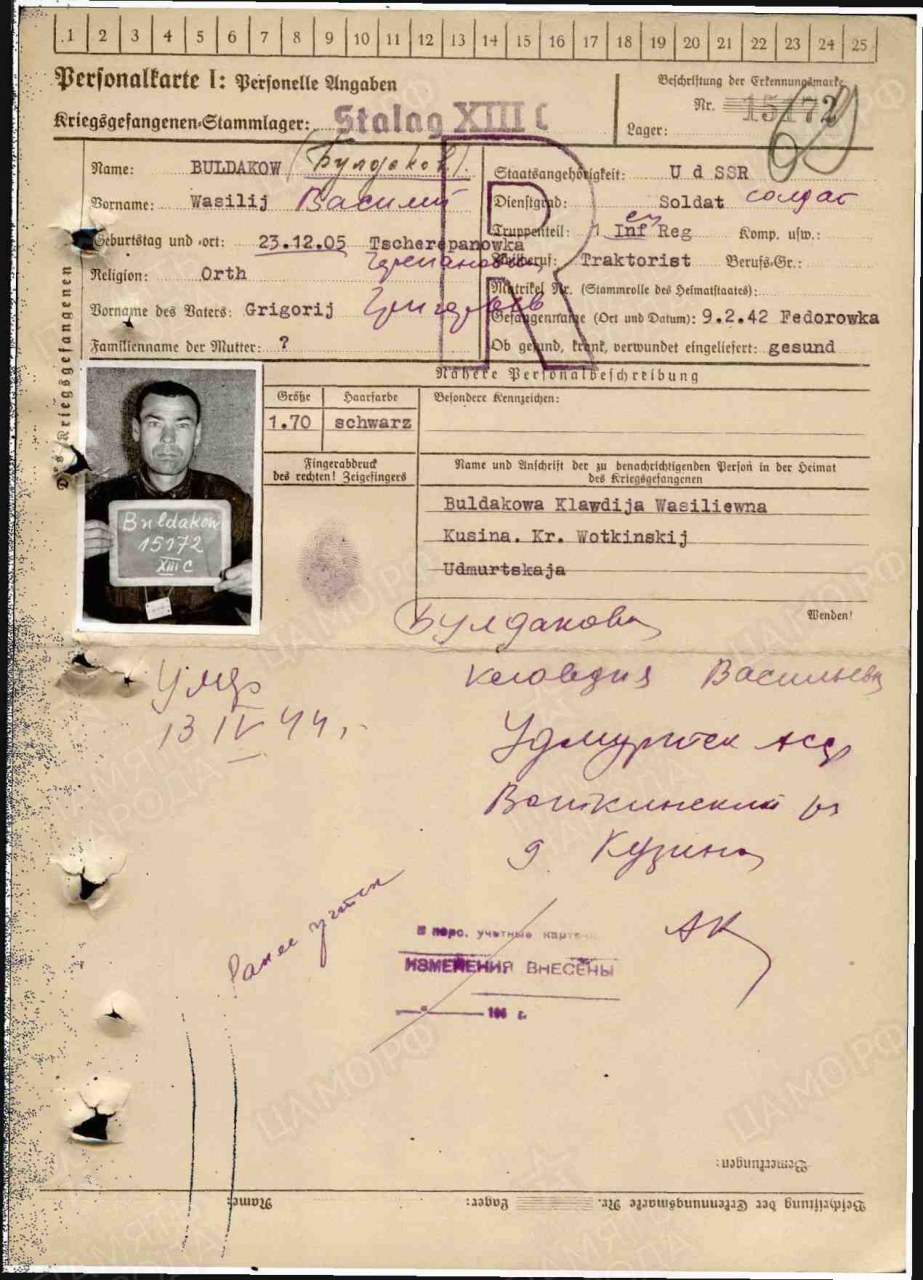 .1 2 3 4 5 6 7 8 9 10 11 12 13 14 15 16 17 18 19 20 21 22 23 24 25
Personalkarte I: Personelle Angaben
Kriegsgefangenen-Stammlager: Stalag XIII C
Beschriftung der Erkennungsmarke
Nr. 15172
Lager:
R
Des Kriegsgefangenen
Name: BULDAKOW (Булдаков)
Vorname: Wasilij Василий
Geburtstag und -ort: 23.12.05 Tscherepanowka
Religion: Orth
Vorname des Vaters: Grigorij
Familienname der Mutter: ?
Staatsangehörigkeit: U d SSR
Dienstgrad: Soldat солдат
Truppenteil: Inf Reg Komp. usw.:
Zivilberuf: Traktorist Berufs-Gr.:
Matrikel Nr. (Stammrolle des Heimatstaates):
Gefangennahme (Ort und Datum): 9.2.42 Fedorowka
Ob gesund, krank, verwundet eingeliefert: gesund
Nähere Personalbeschreibung
Größe Haarfarbe Besondere Kennzeichen:
1.70 schwarz
Fingerabdruck
des rechten! Zeigefingers
Name und Anschrift der zu benachrichtigenden Person in der Heimat
des Kriegsgefangenen
Buldakowa Klawdija Wasiliewna
Kusina. Kr. Wotkinskij
Udmurtskaja
Buldakow
15172
XIII C
Wenden!
Булдакова
Клавдия Васильевна
Удмуртск АССР
Воткинский р
д Кузина
Умер
13 IV 44 г.
Ранее учтен
В перс. учетные карточки
ИЗМЕНЕНИЯ ВНЕСЕНЫ
АК
Bemerkungen:
Beschriftung der Erkennungsmarke Nr. Lager: Name:
ПАМЯТЬ
НАРОДА
ЦАМО РФ